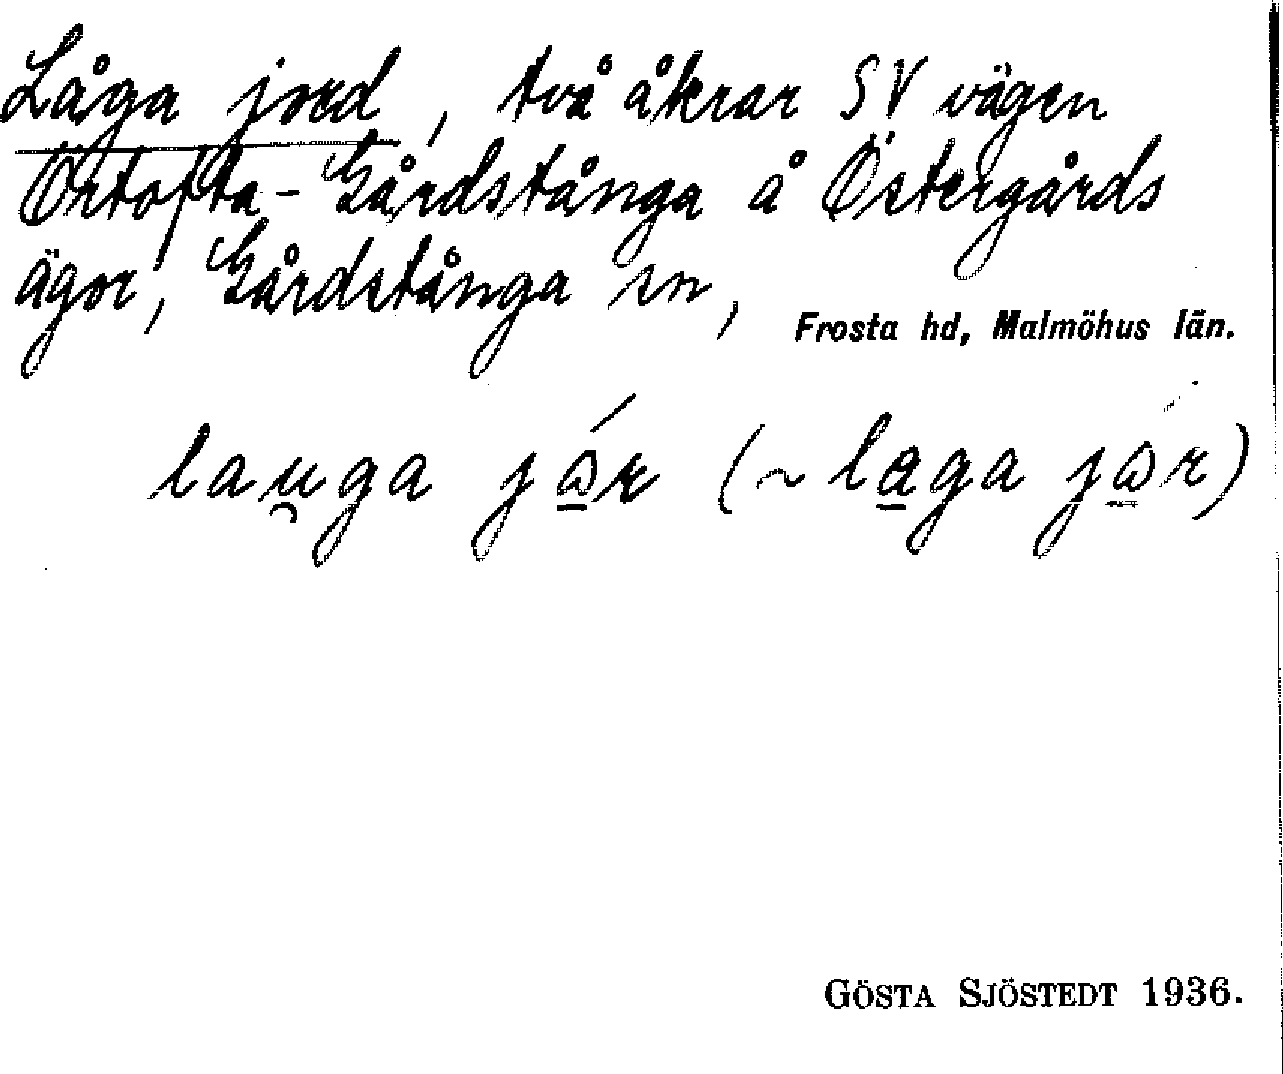 Låga jord, två åkrar SV vägen
Örtofta - Gårdstånga å Östergårds
ägor, Gårdstånga sn, Frosta hd, Malmöhus län.
lau̯ga jɷ̱́r (~ la̱ga jɷ̱́r)
GÖSTA SJÖSTEDT 1936.